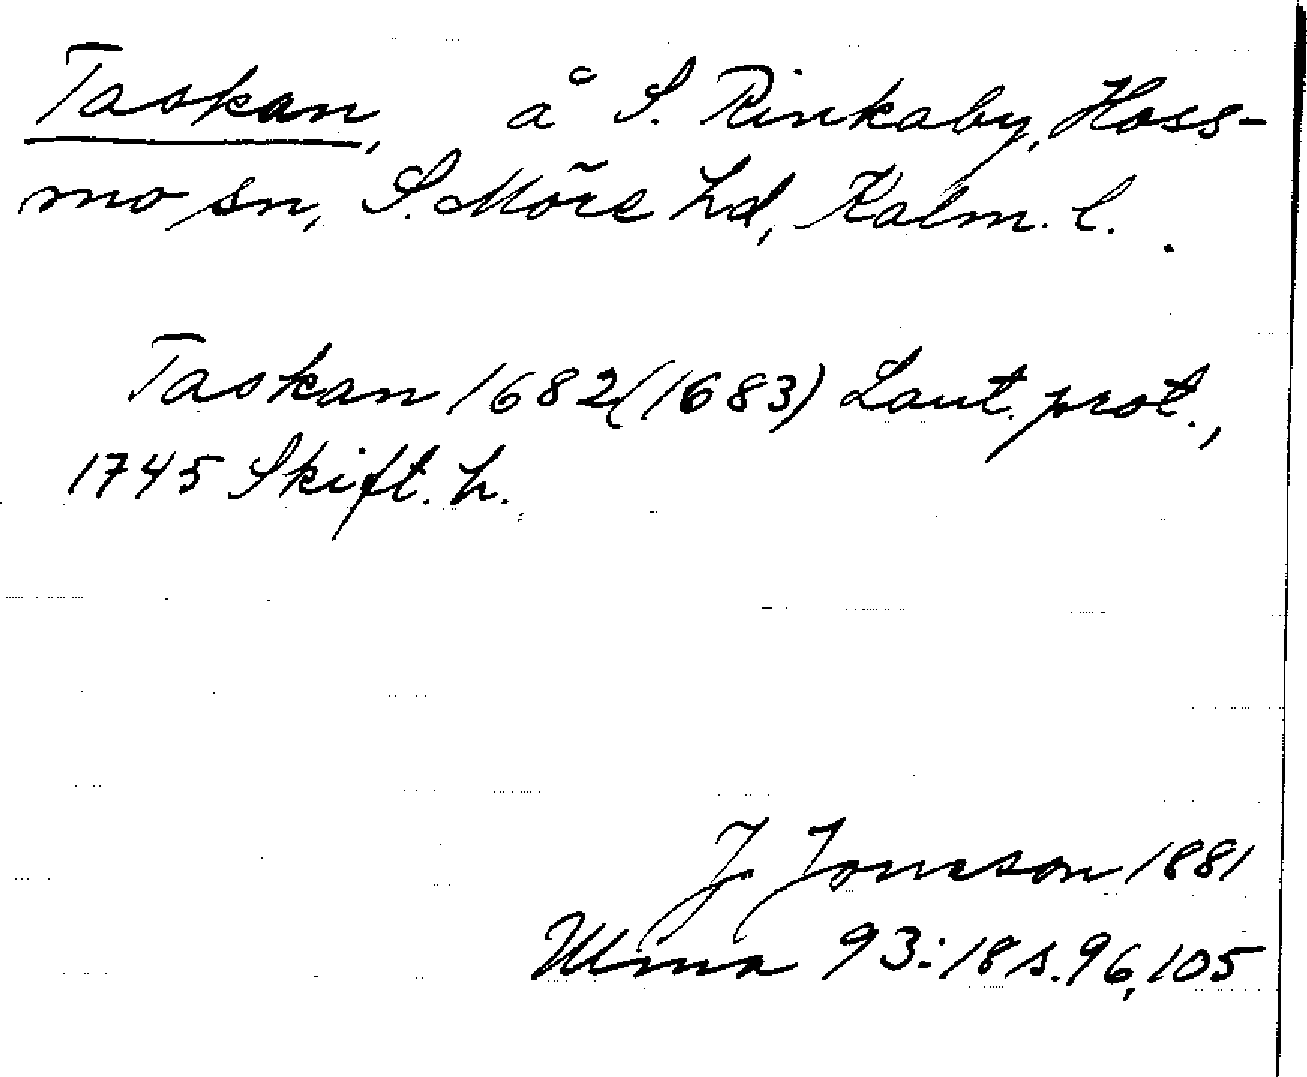 Taskan, å S. Rinkaby, Hoss-
mo sn, S. Möre hd, Kalm. l.
Taskan 1682 (1683) Lant. prot.,
1745 Skift. h.
J Jonsson 1881
Ulma 93:18 s. 96, 105